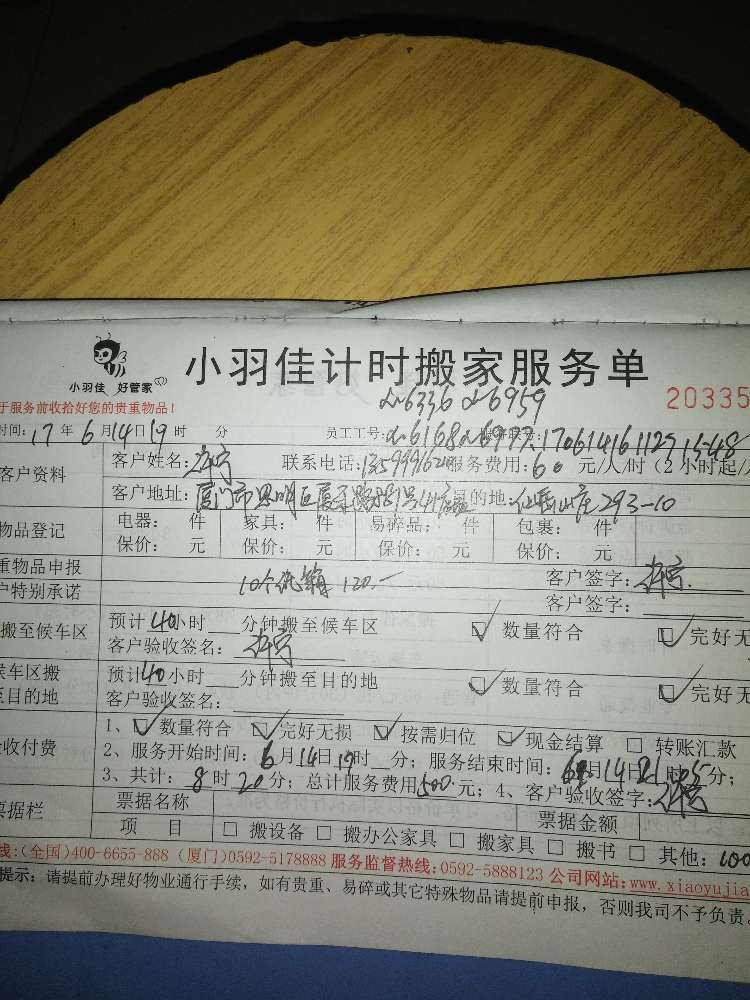 小羽佳 好管家
小羽佳计时搬家服务单
20335
于服务前收拾好您的贵重物品!
6336 6959
时间: 17 年 6 月 14 日 19 时 分 员工工号: 6168 6997
客户资料 客户姓名: 许宁 联系电话: 服务费用: 60 元/人/时 (2 小时起/
客户地址: 厦门市思明区 目的地: 仙岳山庄293-10
物品登记 电器: 件 家具: 件 易碎品: 件 包裹: 件
保价: 元 保价: 元 保价: 元 保价: 元
重物品申报 客户签字: 许宁
户特别承诺 10个纸箱 120.— 客户签字:
搬至候车区 预计 40 小时 分钟搬至候车区 数量符合 完好无
客户验收签名: 许宁
候车区搬 预计 40 小时 分钟搬至目的地 数量符合 完好无
至目的地 客户验收签名:
收付费 1、 数量符合 完好无损 按需归位 现金结算 转账汇款
2、服务开始时间: 6 月 14 日 19 时 分; 服务结束时间: 6 月 14 日 21 时 5 分;
3、共计: 8 时 20 分; 总计服务费用 500 元; 4、客户验收签字: 许宁
票据栏 票据名称 票据金额
项 目 搬设备 搬办公家具 搬家具 搬书 其他: 600
线:(全国)400-6655-888 (厦门)0592-5178888 服务监督热线:0592-5888123 公司网站:www.xiaoyujia
提示: 请提前办理好物业通行手续, 如有贵重、易碎或其它特殊物品请提前申报, 否则我司不予负责。